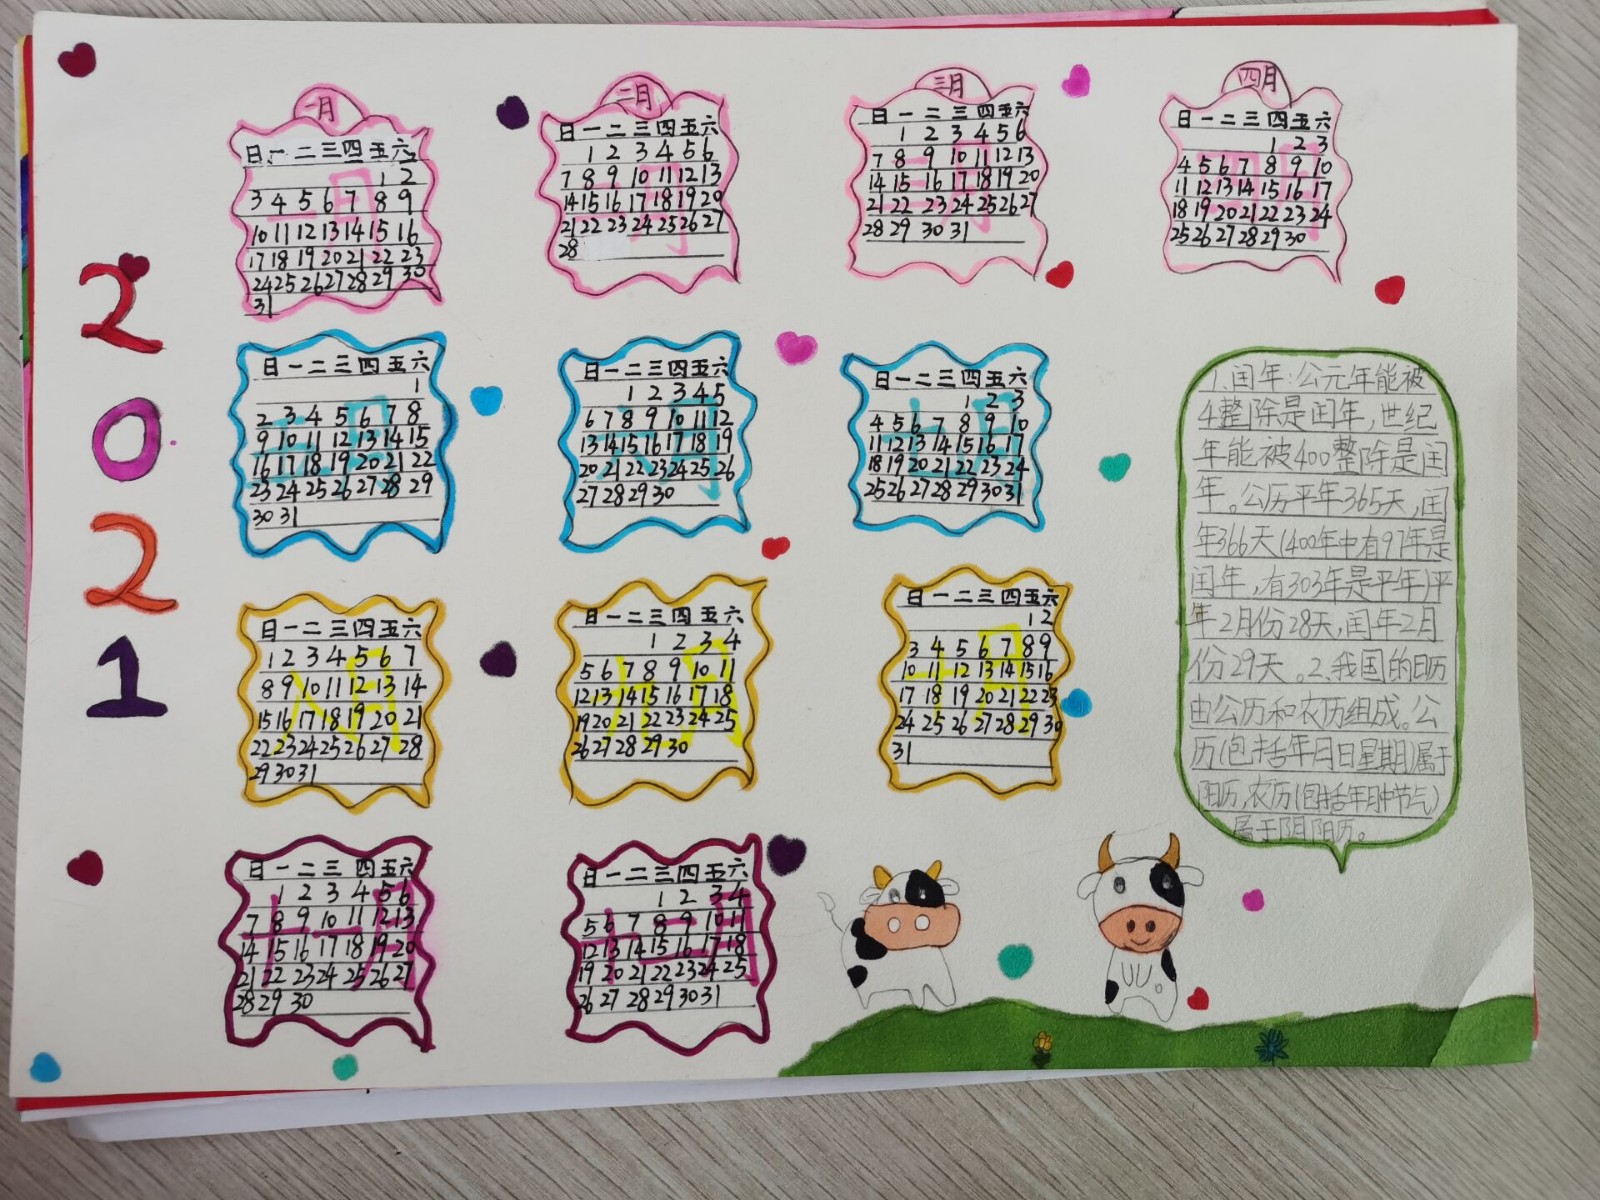 2
0
2
1
一月
日 一 二 三 四 五 六
1 2
3 4 5 6 7 8 9
10 11 12 13 14 15 16
17 18 19 20 21 22 23
24 25 26 27 28 29 30
31
二月
日 一 二 三 四 五 六
1 2 3 4 5 6
7 8 9 10 11 12 13
14 15 16 17 18 19 20
21 22 23 24 25 26 27
28
三月
日 一 二 三 四 五 六
1 2 3 4 5 6
7 8 9 10 11 12 13
14 15 16 17 18 19 20
21 22 23 24 25 26 27
28 29 30 31
四月
日 一 二 三 四 五 六
1 2 3
4 5 6 7 8 9 10
11 12 13 14 15 16 17
18 19 20 21 22 23 24
25 26 27 28 29 30
五月
日 一 二 三 四 五 六
1
2 3 4 5 6 7 8
9 10 11 12 13 14 15
16 17 18 19 20 21 22
23 24 25 26 27 28 29
30 31
六月
日 一 二 三 四 五 六
1 2 3 4 5
6 7 8 9 10 11 12
13 14 15 16 17 18 19
20 21 22 23 24 25 26
27 28 29 30
七月
日 一 二 三 四 五 六
1 2 3
4 5 6 7 8 9 10
11 12 13 14 15 16 17
18 19 20 21 22 23 24
25 26 27 28 29 30 31
八月
日 一 二 三 四 五 六
1 2 3 4 5 6 7
8 9 10 11 12 13 14
15 16 17 18 19 20 21
22 23 24 25 26 27 28
29 30 31
九月
日 一 二 三 四 五 六
1 2 3 4
5 6 7 8 9 10 11
12 13 14 15 16 17 18
19 20 21 22 23 24 25
26 27 28 29 30
十月
日 一 二 三 四 五 六
1 2
3 4 5 6 7 8 9
10 11 12 13 14 15 16
17 18 19 20 21 22 23
24 25 26 27 28 29 30
31
十一月
日 一 二 三 四 五 六
1 2 3 4 5 6
7 8 9 10 11 12 13
14 15 16 17 18 19 20
21 22 23 24 25 26 27
28 29 30
十二月
日 一 二 三 四 五 六
1 2 3 4
5 6 7 8 9 10 11
12 13 14 15 16 17 18
19 20 21 22 23 24 25
26 27 28 29 30 31
1.闰年:公元年能被
4整除是闰年,世纪
年能被400整除是闰
年。公历平年365天,闰
年366天(400年中有97年是
闰年,有303年是平年)平
年2月份28天,闰年2月
份29天。2.我国的日历
由公历和农历组成。公
历(包括年月日星期)属于
阳历,农历(包括年月节气)
属于阴阳历。